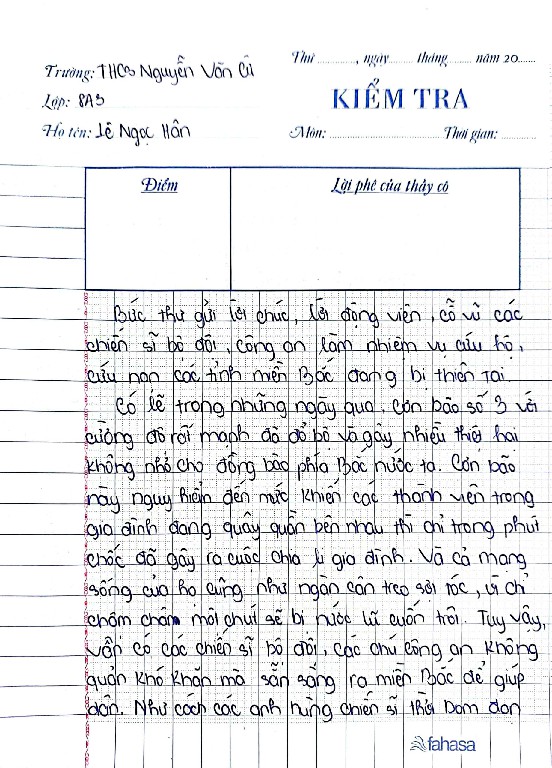 Thứ ............, ngày ............ tháng ............ năm 20......
Trường: THCS Nguyễn Văn Cừ
Lớp: 8A3
KIỂM TRA
Họ tên: Lê Ngọc Hân
Môn: ............ Thời gian: ............
Điểm
Lời phê của thầy cô
Bức thư gửi lời chúc, lời động viên, cỗ vũ các
chiến sĩ bộ đội, công an làm nhiệm vụ cứu hộ,
cứu nạn các tỉnh miền Bắc đang bị thiên tai.
Có lẽ trong những ngày qua, cơn bão số 3 với
cường độ rất mạnh đã đổ bộ và gây nhiều thiệt hại
không nhỏ cho đồng bào phía Bắc nước ta. Cơn bão
này nguy hiểm đến mức khiến các thành viên trong
gia đình đang quây quần bên nhau thì chỉ trong phút
chốc đã gây ra cuộc chia li gia đình. Và cả mạng
sống của họ cũng như ngàn cân treo sợi tóc, vì chỉ
chậm chậm một chút sẽ bị nước lũ cuốn trôi. Tuy vậy,
vẫn có các chiến sĩ bộ đội, các chú công an không
quản khó khăn mà sẵn sàng ra miền Bắc để giúp
dân. Như cách các anh hùng chiến sĩ thời bom đạn
fahasa